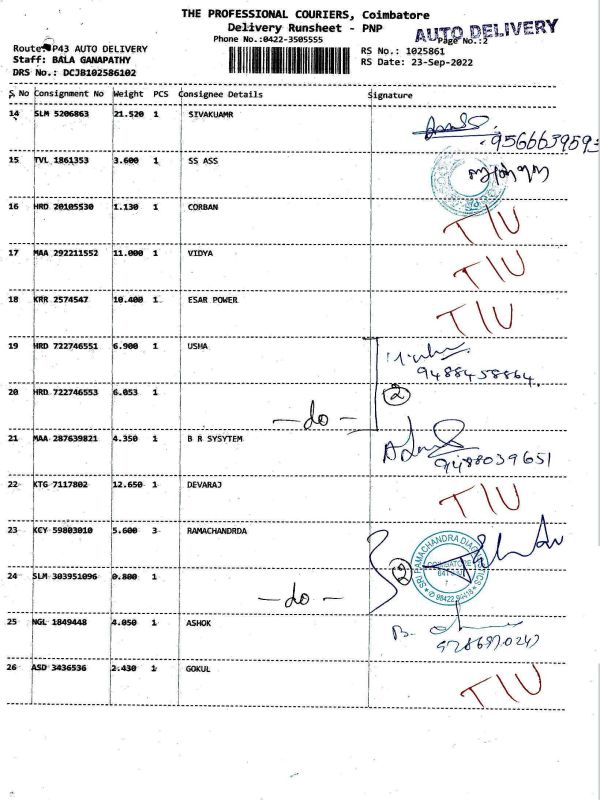 THE PROFESSIONAL COURIERS, Coimbatore
Delivery Runsheet - PNP
AUTO DELIVERY
Phone No.:0422-3505555
Page No.:2
Route: P43 AUTO DELIVERY
Staff: BALA GANAPATHY
DRS No.: DCJB102586102
RS No.: 1025861
RS Date: 23-Sep-2022
S No Consignment No Weight PCS Consignee Details Signature
14 SLM 5206863 21.520 1 SIVAKUAMR
9566639593
15 TVL 1861353 3.600 1 SS ASS
16 HRD 20105530 1.130 1 CORBAN T/U
17 MAA 292211552 11.000 1 VIDYA T/U
18 KRR 2574547 10.400 1 ESAR POWER T/U
19 HRD 722746551 6.900 1 USHA
9488458864.
20 HRD 722746553 6.053 1 2
-do-
21 MAA 287639821 4.350 1 B R SYSYTEM
9488039651
22 KTG 7117802 12.650 1 DEVARAJ T/U
23 KEY 59803010 5.600 3 RAMACHANDRDA
SRI RAMACHANDRA DIAGNOSTICS
COIMBATORE
24 SLM 303951096 0.800 1 2
-do-
25 NGL 1849448 4.050 1 ASHOK
26 ASD 3436536 2.430 1 GOKUL T/U